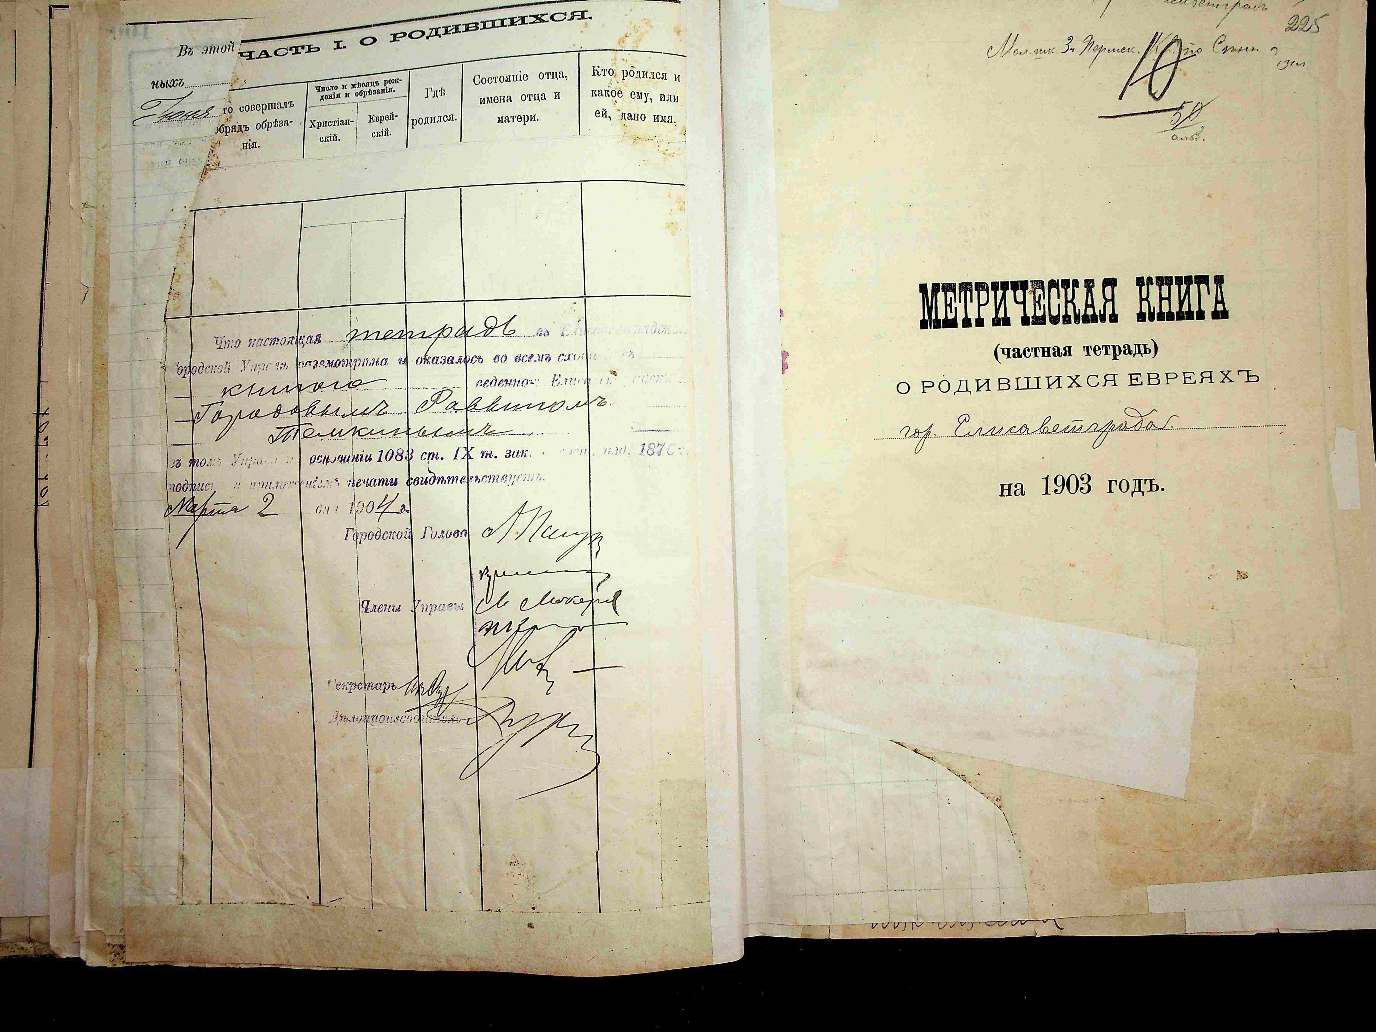 Въ этой
ЧАСТЬ I. О РОДИВШИХСЯ.
ныхъ
Іюня
го совершалъ
обрядъ обрѣза-
нія.
Число и мѣсяцъ рож-
денія и обрѣзанія.
Христіан-
скій.
Еврей-
скій.
Гдѣ
родился.
Состояніе отца,
имена отца и
матери.
Кто родился и
какое ему, или
ей, дано имя.
Что настоящая тетрадь въ
Городской Управѣ разсмотрѣна и оказалось во всемъ
книгою веденною
Городовымъ Раввиномъ
Темкинымъ
въ томъ Управа на основаніи 1083 ст. IX т. зак. 1876 г.
подписью и приложеніемъ печати свидѣтельствуетъ.
Марта 2 дня 1904 г.
Городской Голова
Члены Управы
Секретарь
Дѣлопроизводитель
225
10
50
МЕТРИЧЕСКАЯ КНИГА
(частная тетрадь)
О РОДИВШИХСЯ ЕВРЕЯХЪ
гор Елисаветграда
на 1903 годъ.